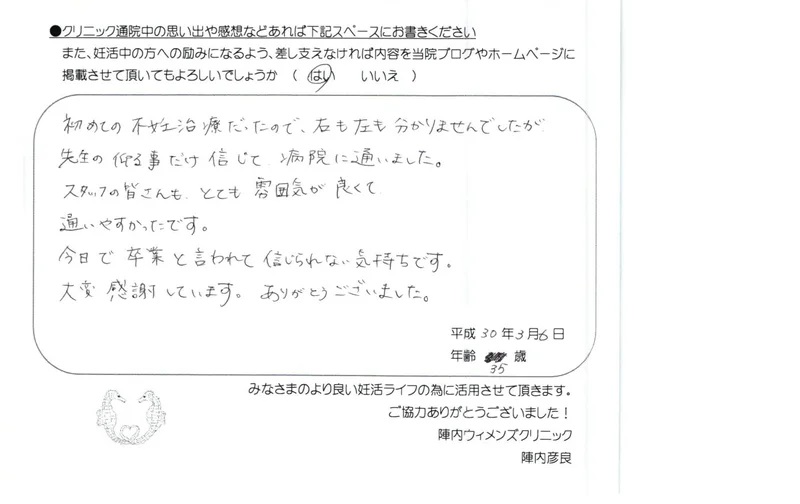 ●クリニック通院中の思い出や感想などあれば下記スペースにお書きください
また、妊活中の方への励みになるよう、差し支えなければ内容を当院ブログやホームページに
掲載させて頂いてもよろしいでしょうか （ はい いいえ ）
初めての 不妊治療だったので、右も左も 分かりませんでしたが
先生の 仰る事だけ 信じて 病院に通いました。
スタッフの皆さんも、とても 雰囲気が 良くて
通いやすかったです。
今日で 卒業 と言われて 信じられない気持ちです。
大変 感謝しています。 ありがとうございました。
平成 30 年 3 月 6 日
年齢 歳
35
みなさまのより良い妊活ライフの為に活用させて頂きます。
ご協力ありがとうございました！
陣内ウィメンズクリニック
陣内彦良